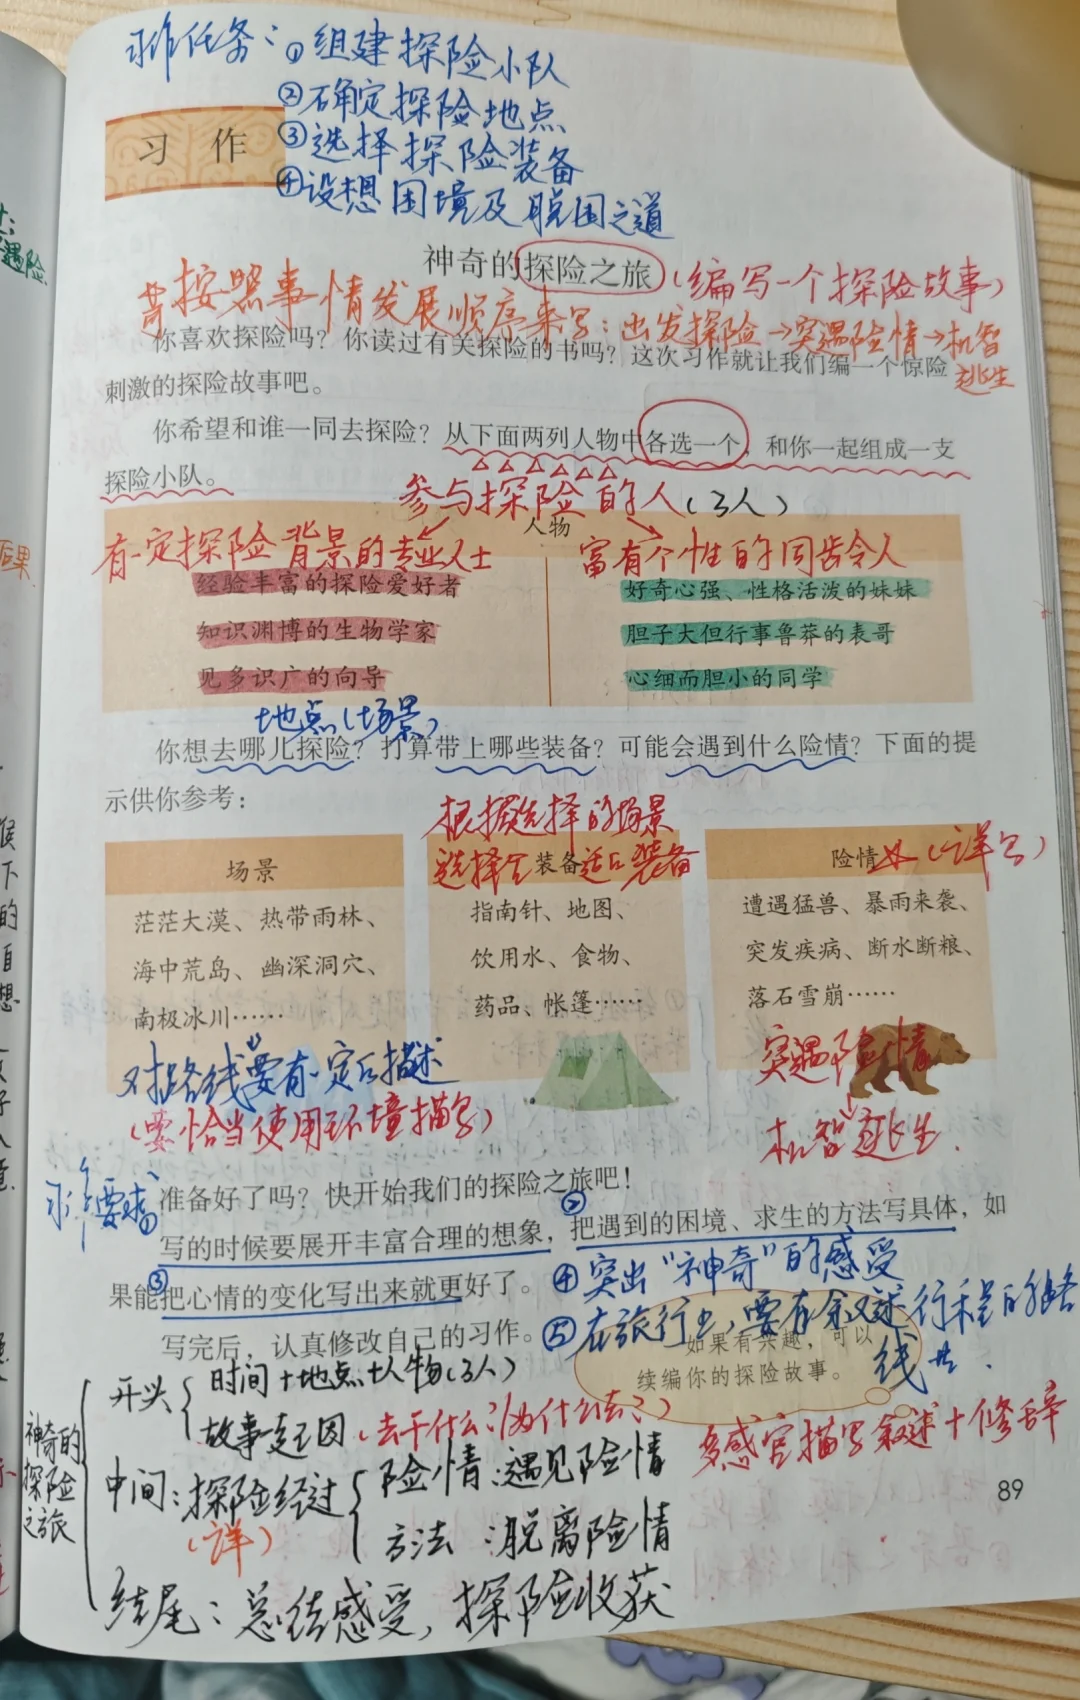 习作任务：①组建探险小队
②确定探险地点
③选择探险装备
④设想困境及脱困之道
习 作
神奇的探险之旅(编写一个探险故事)
按照事情发展顺序来写：出发探险→突遇险情→机智逃生
你喜欢探险吗？你读过有关探险的书吗？这次习作就让我们编一个惊险
刺激的探险故事吧。
你希望和谁一同去探险？从下面两列人物中各选一个，和你一起组成一支
探险小队。
参与探险的人(3人)
人物
有一定探险背景的专业人士
富有个性的同龄人
经验丰富的探险爱好者
好奇心强、性格活泼的妹妹
知识渊博的生物学家
胆子大但行事鲁莽的表哥
见多识广的向导
心细而胆小的同学
地点(场景)
你想去哪儿探险？打算带上哪些装备？可能会遇到什么险情？下面的提
示供你参考：
根据选择的场景
选择合适的装备
场景
装备
险情(详写)
茫茫大漠、热带雨林、
海中荒岛、幽深洞穴、
南极冰川……
指南针、地图、
饮用水、食物、
药品、帐篷……
遭遇猛兽、暴雨来袭、
突发疾病、断水断粮、
落石雪崩……
对路线要有一定的描述
(要恰当使用环境描写)
突遇险情
机智逃生.
习作要求
准备好了吗？快开始我们的探险之旅吧！
①写的时候要展开丰富合理的想象，②把遇到的困境、求生的方法写具体，如
果能③把心情的变化写出来就更好了。④突出"神奇"的感受
写完后，认真修改自己的习作。⑤在旅行中，要有叙述行程的路线.
如果有兴趣，可以
续编你的探险故事。
多感官描写叙述+修辞
神奇的探险之旅
开头
时间+地点+人物(3人)
故事起因(去干什么?/为什么去?)
中间：探险经过
(详)
险情：遇见险情
方法：脱离险情
结尾：总结感受，探险收获
89